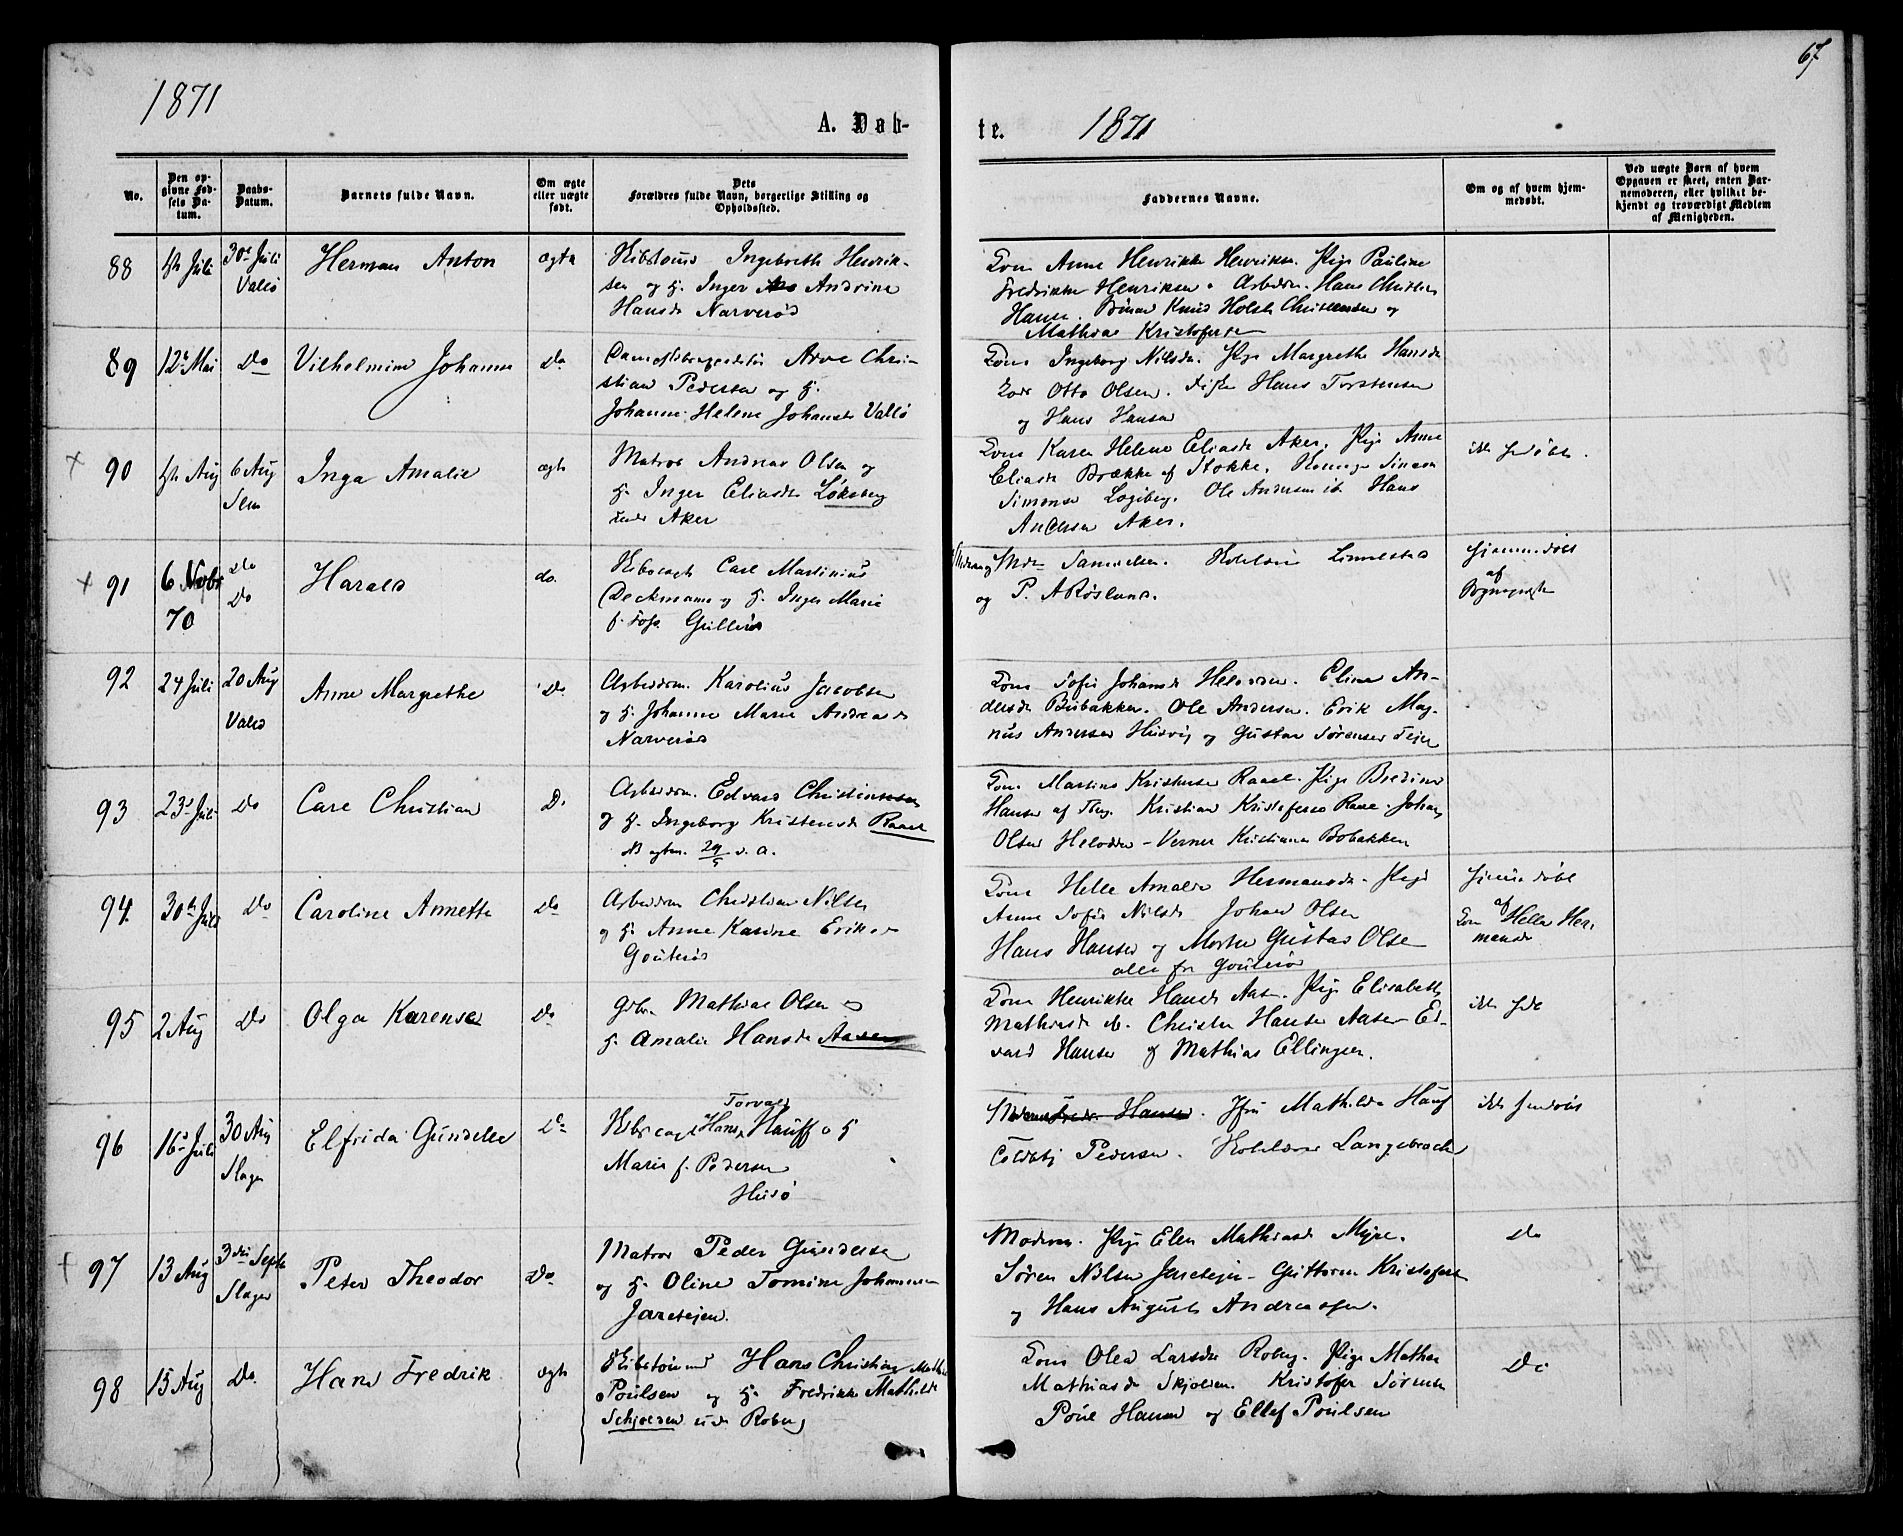 67
1871
A. Døb-
te.
1871
No.
Den op-
givne Fød-
sels Da-
tum.
Daabs-
Datum.
Barnets fulde Navn.
Om ægte
eller uægte
født.
Dets
Forældres fulde Navn, borgerlige Stilling og
Opholdssted.
Faddernes Navne.
Om og af hvem hjem-
medøbt.
Ved uægte Børn af hvem
Opgaven er skeet, enten Bar-
nemoderen, eller hvilket be-
kjendt og troværdigt Medlem
af Menigheden.
88
Juli
30te Juli
Vallø
Herman Anton
ægte
Ingebreth Henrik-
sen og H. Inger Andrine
Hansd Narverød
Kone Anne Henrikke Henriks. Pige Pauline
Fredrikke Henriksen. Arbeidsm. Hans Christen
Hansen. Knud Holst Christensen og
Mathias Kristofersen
89
12te Mai
Do
Vilhelmine Johanne
Do
Arve Chri-
stian Pedersen og H.
Johanne Helene Johansd Vallø
Kone Ingeborg Nilsd. Pige Margrethe Hansd
Otto Olsen. Fisker Hans Torstensen
og Hans Hansen
90
Aug
6 Aug
Sem
Inga Amalie
ægte
Matros Andreas Olsen og
H. Inger Eliasd Løksberg
under Aker
Kone Karen Helene Eliasd Aker. Pige Anne
Eliasd Brække af Stokke. Simon
Simonsen Logiberg. Ole Andersen ib. Hans
Andersen Aker.
91
6 Novbr
70
Do
Do
Harald
do.
Carl Martinius
Deckmann og H. Inger Marie
f. Foss Gullerød
Moderen og Mdm Samuelsen. Linnestad
og P. A Røslund.
hjemmedøbt
af
92
24 Juli
20 Aug
Valø
Anne Margrethe
Do
Arbeidsm. Karolius Jacobsen
og H. Johanne Marie Andreasd
Narverød
Kone Sofie Johansd Helodden. Eline An-
dersd Bubakken. Ole Andersen. Erik Mag-
nus Andersen Husvig og Gustav Sørensen Teie
93
23de Juli
Do
Carl Christian
Do
Arbeidsm. Edvard Christensen
og H. Ingeborg Kristensd Raael
NB egten. 29/5 d. a.
Kone Martine Kristensen Raael. Pige Bredine
Hansen af Tbg. Kristian Kristofersen Raae. Johan
Olsen Helodden - Verner Kristiansen Bobakken
94
30te Juli
Do
Caroline Annette
Do
Arbeidsm Christian Nilsen
og H. Anne Karine Eriks
Gouterød
Kone Helle Amalie Hermansd. Pige
Anne Sofie Nilsd Johan Olsen
Hans Hansen og Morten Gustav Olsen
alle fra Gouterød
hjemmedøbt
af
Kone Helle Her-
mansd
95
2 Aug
Do
Olga Karense
Do
Gbr. Mathias Olsen og
H. Amalie Hansd Aasen
Kone Henrikke Hansd Aasen. Pige Elisabeth
Mathiasd ib. Christen Hansen Aasen Ed-
vard Hansen og Mathias Ellingsen.
96
16de Juli
30 Aug
Slagen
Elfrida Gundelle
Do
Torvald
Hans Hauff og H
Marie f. Pedersen
Husø
Hansen. Jfr Mathilde Hauf
Pedersen. Langebrock
97
13 Aug
3die Septb
Slagen
Peter Theodor
Do
Matros Peder Gundersen
og H. Oline Tomine Johannesen
Jarsteien.
Moderen. Pige Elen Mathiasd Myre.
Søren Nilsen Jarsteien - Guttorm Kristofers
og Hans August Andreassen.
Do
98
15 Aug
Do
Hans Fredrik
ægte
Hans Christian
Poulsen og H. Fredrikke Mathilde
Schjelsen under Roberg
Kone Olea Larsd Roberg. Pige Mathea
Mathiasd Skjelsen. Kristofer Sørensen
Poul Hansen og Ellef Poulsen
Do